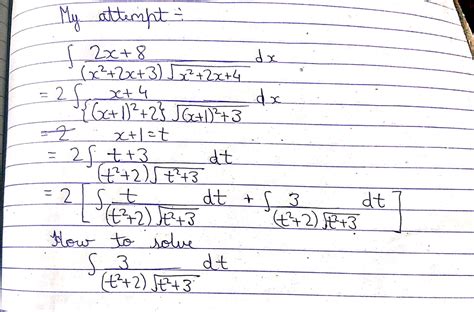 My attempt :-
∫ 2x+8 / (x²+2x+3) √x²+2x+4 dx
= 2 ∫ x+4 / {(x+1)²+2} √(x+1)²+3 dx
= 2 x+1 = t
= 2 ∫ t+3 / (t²+2) √t²+3 dt
= 2 [ ∫ t / (t²+2) √t²+3 dt + ∫ 3 / (t²+2) √t²+3 dt ]
How to solve
∫ 3 / (t²+2) √t²+3 dt